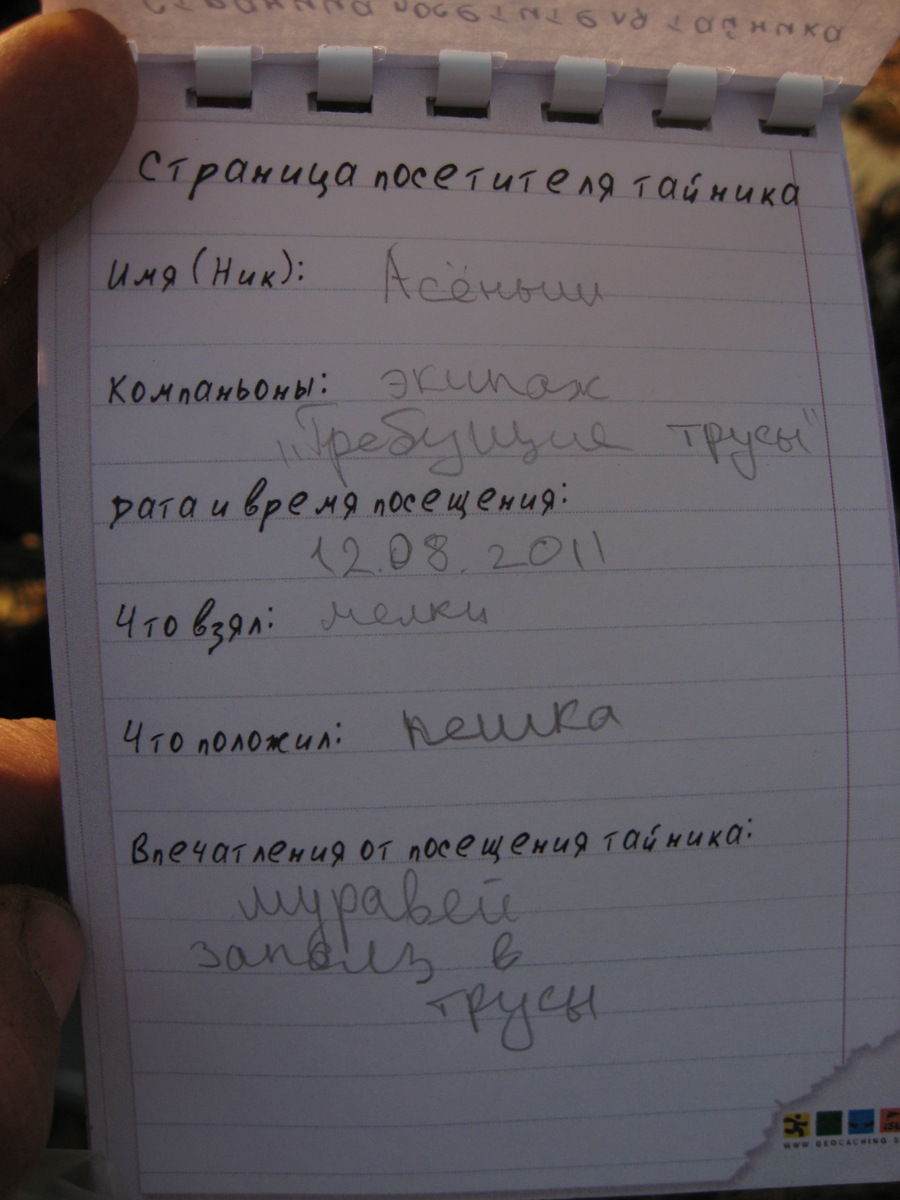 Страница посетителя тайника
Страница посетителя тайника
Имя (Ник): Асёныш
Компаньоны: экипаж
"Требущие трусы"
Дата и время посещения:
12.08.2011
Что взял: мелки
Что положил: пешка
Впечатления от посещения тайника:
муравей
заполз в
трусы
WWW.GEOCACHING